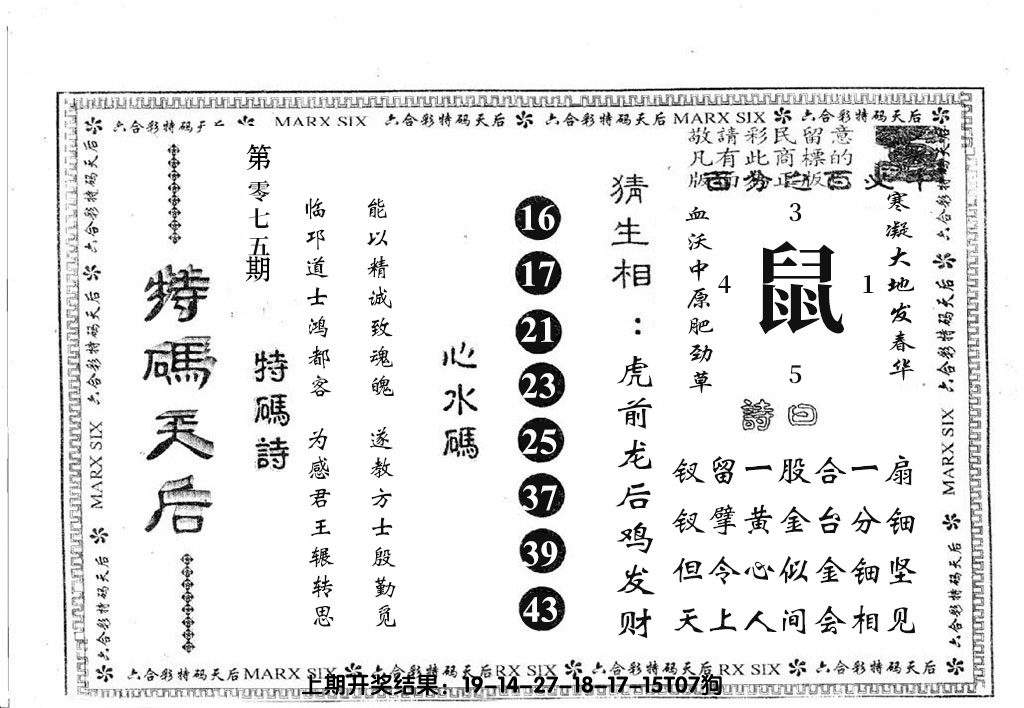 六合彩特码天后 MARX SIX 六合彩特码天后 六合彩特码天后 MARX SIX 六合彩特码天后
敬請彩民留意
凡有此商標的
六合彩特码天后 六合彩特码天后 MARX SIX 六合彩特码天后
特碼天后
第零七五期
特碼詩
临邛道士鸿都客 为感君王辗转思
能以精诚致魂魄 遂教方士殷勤觅
心水碼
16
17
21
23
25
37
39
43
猜生相:虎前龙后鸡发财
血沃中原肥劲草
3
4 鼠 1
5
寒凝大地发春华
詩曰
钗留一股合一扇
钗擘黄金台分钿
但令心似金钿坚
天上人间会相见
六合彩特码天后 六合彩特码天后 MARX SIX 六合彩特码天后
六合彩特码天后 MARX SIX 六合彩特码天后 RX SIX 六合彩特码天后 RX SIX 六合彩特码天后
上期开奖结果：19-14-27-18-17-15T07狗